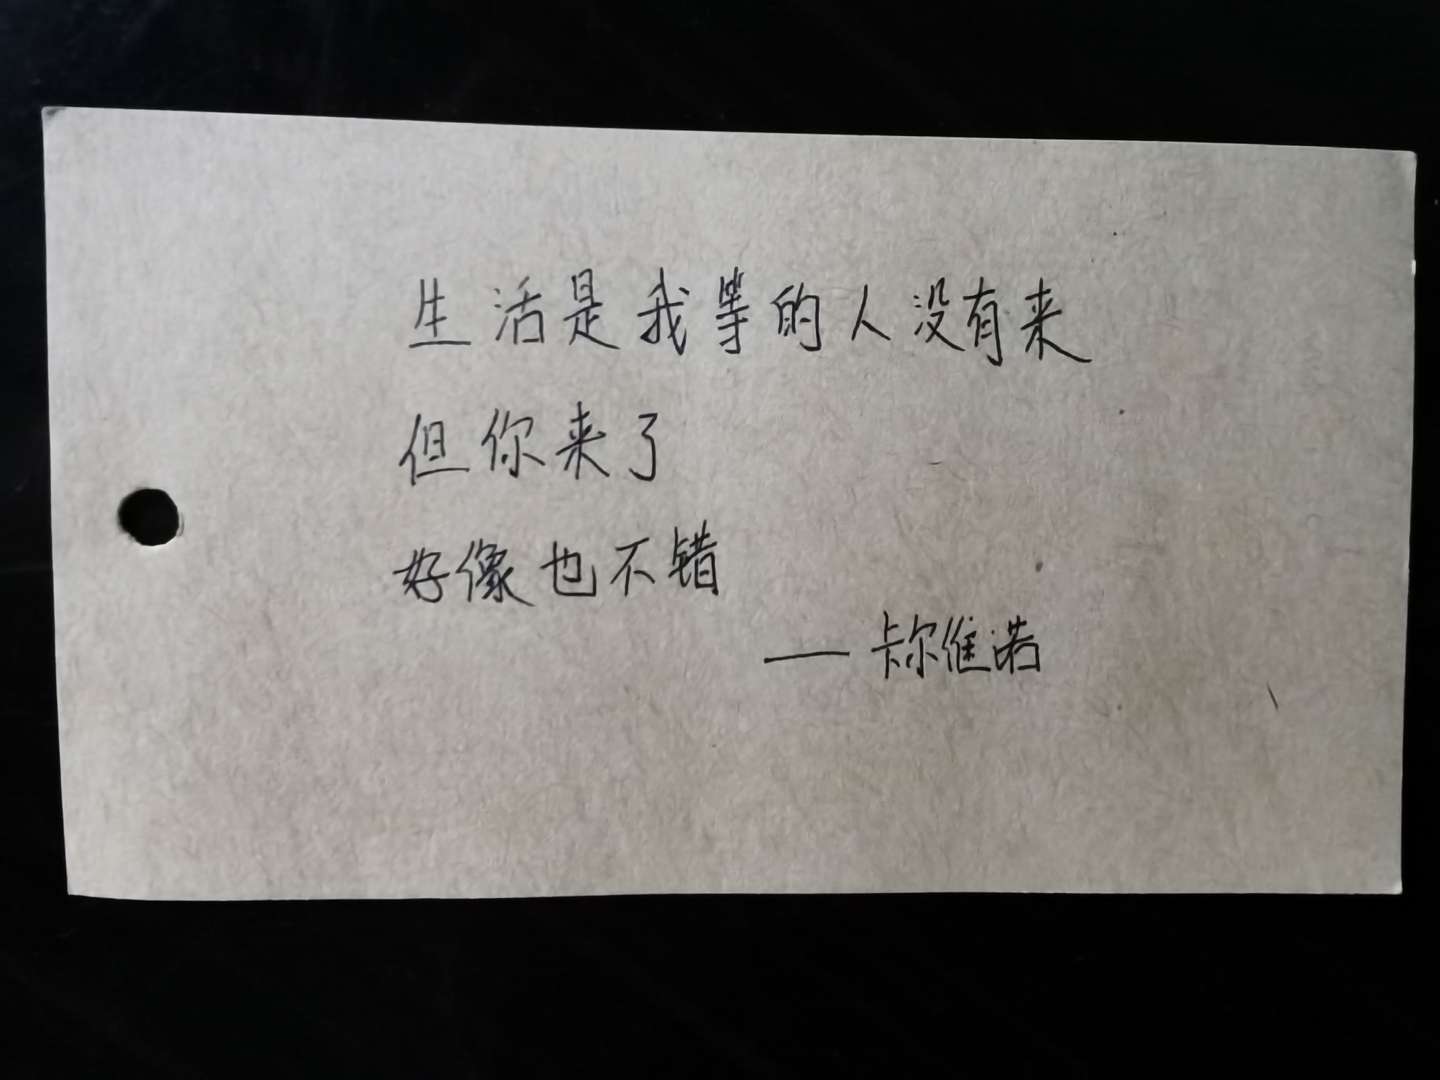 生活是我等的人没有来
但你来了
好像也不错
——卡尔维诺